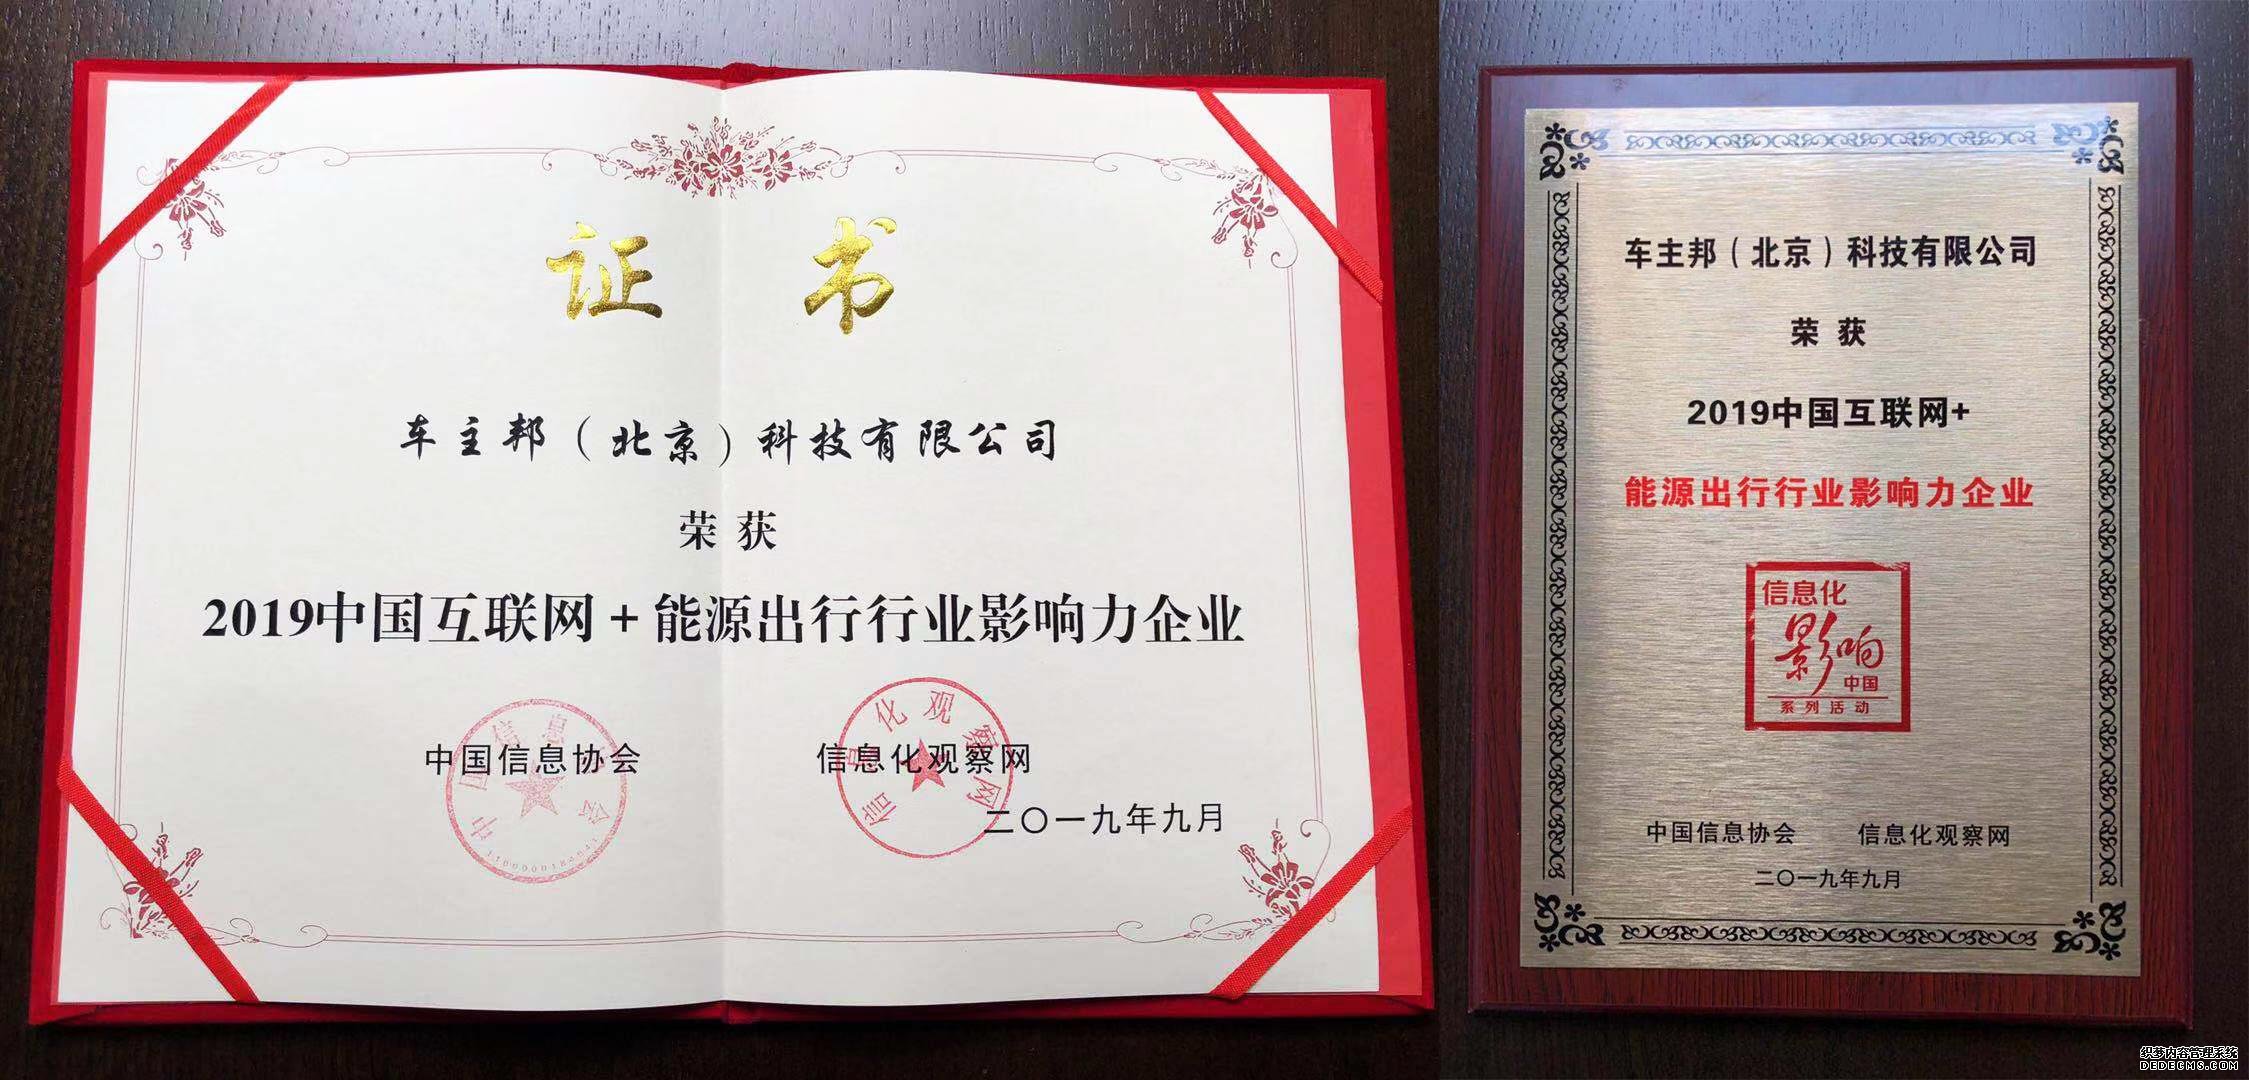 证 书
车主邦（北京）科技有限公司
荣 获
2019中国互联网+能源出行行业影响力企业
中国信息协会 信息化观察网
中国信息协会
信息化观察网
二〇一九年九月
车主邦（北京）科技有限公司
荣 获
2019中国互联网+
能源出行行业影响力企业
信息化
影响
中国
系列活动
中国信息协会 信息化观察网
二〇一九年九月
织梦内容管理系统
DEDECMS.COM